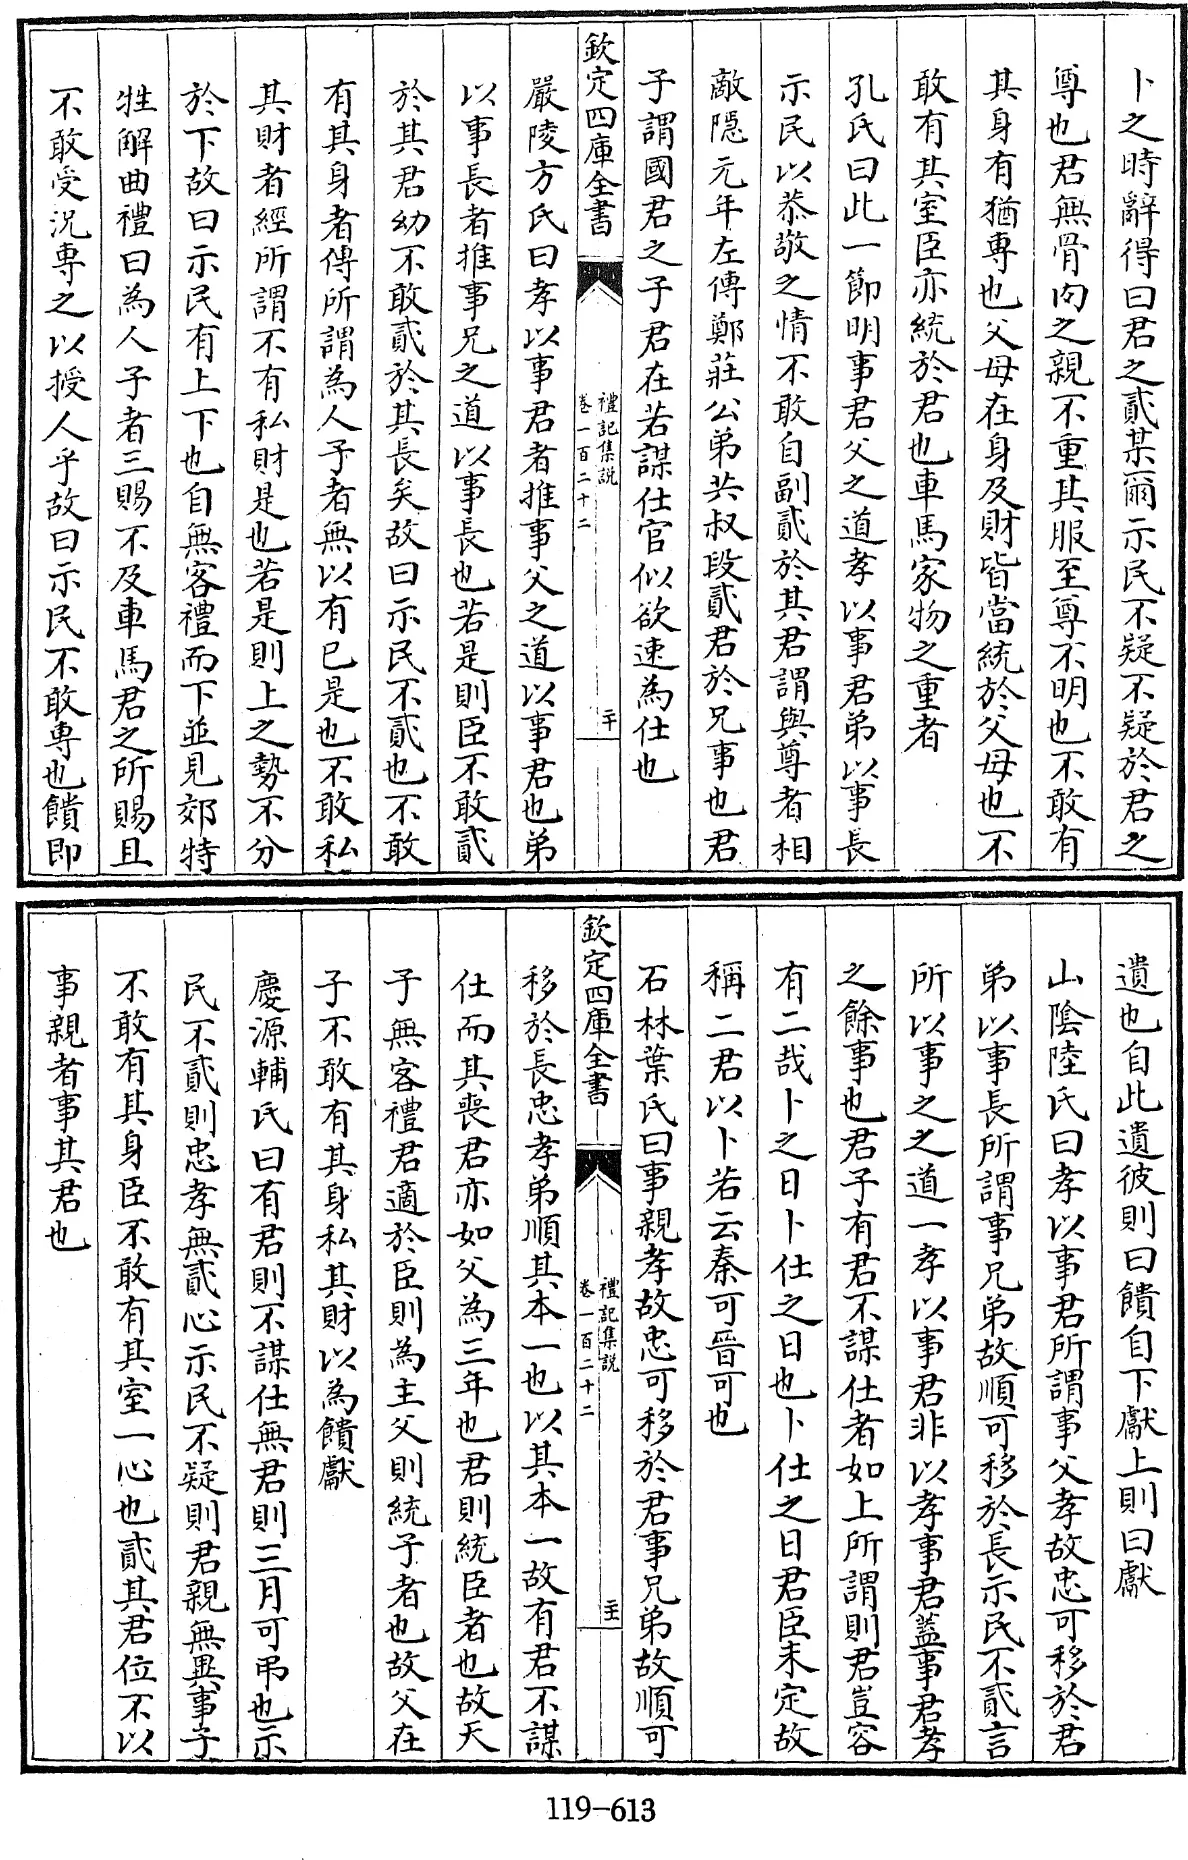 卜之時辭得曰君之貳某爾示民不疑不疑於君之
尊也君無骨肉之親不重其服至尊不明也不敢有
其身有猶専也父母在身及財皆當統於父母也不
敢有其室臣亦統於君也車馬家物之重者
孔氏曰此一節明事君父之道孝以事君弟以事長
示民以恭敬之情不敢自副貳於其君謂與尊者相
敵隱元年左傳鄭莊公弟共叔段貳君於兄事也君
子謂國君之子君在若謀仕官似欲速為仕也
欽定四庫全書
禮記集説
卷一百二十二
二十
嚴陵方氏曰孝以事君者推事父之道以事君也弟
以事長者推事兄之道以事長也若是則臣不敢貳
於其君幼不敢貳於其長矣故曰示民不貳也不敢
有其身者傳所謂為人子者無以有已是也不敢私
其財者經所謂不有私財是也若是則上之勢不分
於下故曰示民有上下也自無客禮而下並見郊特
牲解曲禮曰為人子者三賜不及車馬君之所賜且
不敢受況専之以授人乎故曰示民不敢専也饋即
遺也自此遺彼則曰饋自下獻上則曰獻
山陰陸氏曰孝以事君所謂事父孝故忠可移於君
弟以事長所謂事兄弟故順可移於長示民不貳言
所以事之之道一孝以事君非以孝事君蓋事君孝
之餘事也君子有君不謀仕者如上所謂則君豈容
有二哉卜之日卜仕之日也卜仕之日君臣未定故
稱二君以卜若云秦可晉可也
石林葉氏曰事親孝故忠可移於君事兄弟故順可
欽定四庫全書
禮記集説
卷一百二十二
二十一
移於長忠孝弟順其本一也以其本一故有君不謀
仕而其喪君亦如父為三年也君則統臣者也故天
子無客禮君適於臣則為主父則統子者也故父在
子不敢有其身私其財以為饋獻
慶源輔氏曰有君則不謀仕無君則三月可弔也示
民不貳則忠孝無貳心示民不疑則君親無異事子
不敢有其身臣不敢有其室一心也貳其君位不以
事親者事其君也
119-613